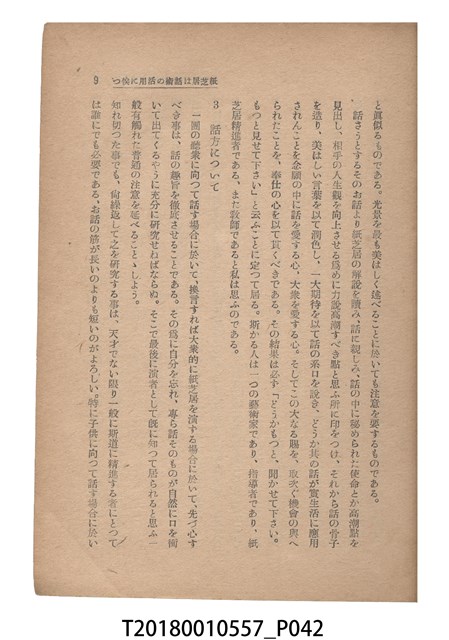 紙芝居は話術の活用に俟つ 9
と眞似るものである。光景を最も美はしく述べることに於いても注意を要するものである。
話さうとするそのお話より紙芝居の解說を讀み、話に親しみ、話の中に祕められた使命とか高潮點を
見出し、相手の人生觀を向上させる爲めに力說高潮すべき點と思ふ所に印をつけ、それから話の骨子
を造り、美はしい言葉を以て潤色し、一大期待を以て話の糸口を說き、どうか其の話が實生活に應用
されんことを念願の中に話を愛する心、大衆を愛する心。そしてこの大なる賜を、取次ぐ機會の與へ
られたことを、奉仕の心を以て貫くべきである。その結果は必す『どうかもつと、聞かせて下さい。
もつと見せて下さい』と云ふことに定つて居る。斯かる人は一つの藝術家であり、指導者であり、紙
芝居精進者である、また敎師であると私は思ふのである。
3 話方について
一團の聽衆に向つて話す場合に於いて、換言すれば大衆的に紙芝居を演する場合に於いて、先づ心す
べき事は、話の趣旨を徹底させることである。その爲に自分を忘れ、專ら話そのものが自然に口を衝
いて出てくるやうに充分に研究せねばならぬ。そこで最後に演者として旣に知つて居られると思ふ一
般有觸れた普通の注意を延べることゝしよう。
知れ切つた事でも、尙繰返して之を研究する事は、天才でない限り一般に斯道に精進する者にとつて
は誰にでも必要である、お話の筋が長いのよりも短いのがよろしい。特に子供に向つて話す場合に於い
T20180010557_P042